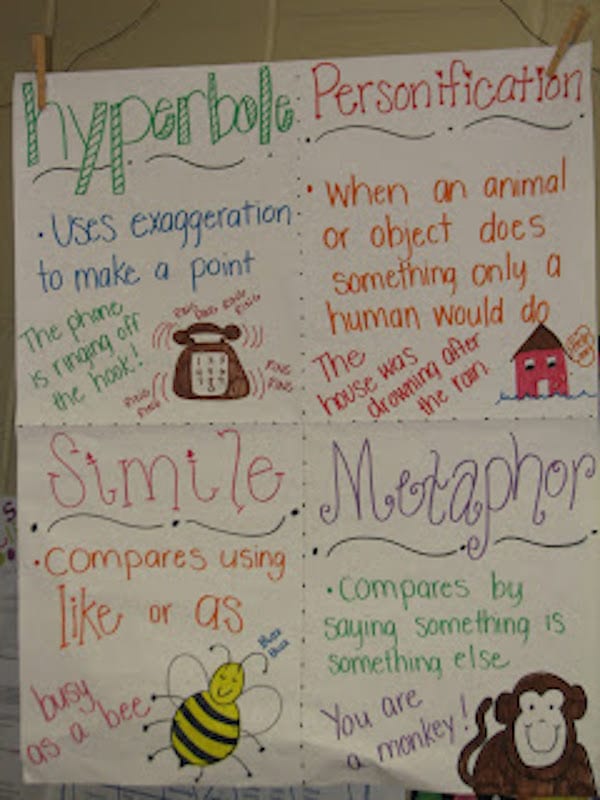 Hyperbole
• Uses exaggeration
to make a point
The phone
is ringing off
the hook!
RING RING RING
RING
RING
RING
RING
RING
Personification
• When an animal
or object does
something only a
human would do
The
house was
drowning after
the rain.
Simile
• Compares using
like or as
busy
as a bee
Buzz
Buzz
Metaphor
• Compares by
saying something is
something else
You are
a monkey!